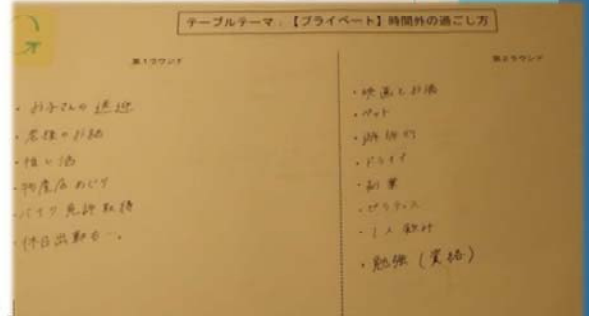 テーブルテーマ：【プライベート】時間外の過ごし方
第1ラウンド
・お子さんの送迎
・客様のお話
・物産店めぐり
・バイク免許取得
・休日出勤も…。
第2ラウンド
・映画とお酒
・ペット
・ドライブ
・副業
・ピラティス
・1人飲み
・勉強(資格)